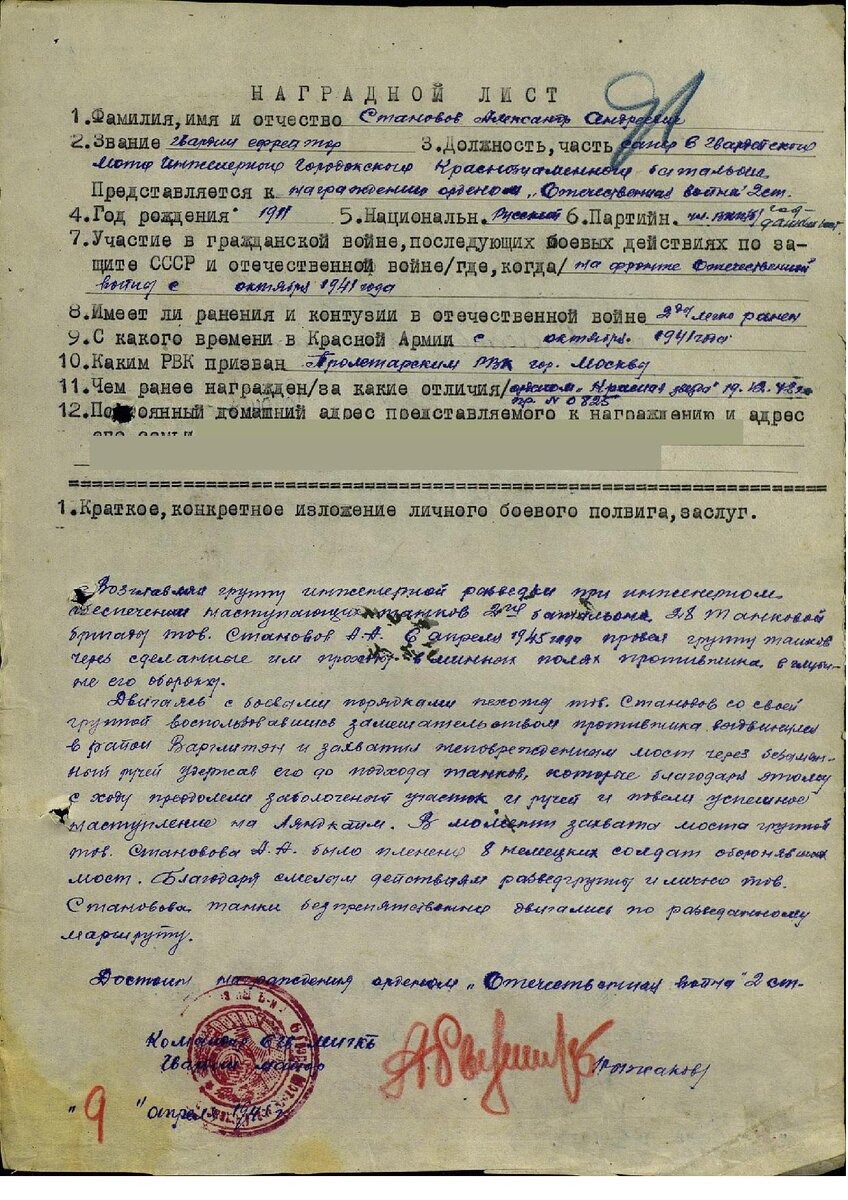 НАГРАДНОЙ ЛИСТ
1.Фамилия,имя и отчество Становов Александр Андреевич
2.Звание Гвардии ефрейтор 3.Должность,часть сапер 6 Гвардейского
Мото Инженерного Городокского Краснознаменного батальона
Представляется к награждению орденом „Отечественная война" 2 ст.
4.Год рождения 1911 5.Национальн. Русский 6.Партийн. чл. ВКП(б)
7.Участие в гражданской войне,последующих боевых действиях по за-
щите СССР и отечественной войне/где,когда/ на фронте Отечественной
войны с октября 1941 года
8.Имеет ли ранения и контузии в отечественной войне 2 ды легко ранен
9.С какого времени в Красной Армии с октября 1941 года
10.Каким РВК призван Пролетарским РВК гор. Москвы
11.Чем ранее награжден/за какие отличия/ орденом „Красная звезда"
пр. N 0825
12.Постоянный домашний адрес представляемого к награждению и адрес
его семьи
1.Краткое,конкретное изложение личного боевого полвига,заслуг.
Возглавляя группу инженерной разведки при инженерном
обеспечении наступающих танков 2го батальона 28 Танковой
бригады тов. Становов А.А. 6 апреля 1945 года провел группу танков
через сделанные им проходы в минных полях противника в глуби-
не его обороны.
Двигаясь с боевыми порядками пехоты тов. Становов со своей
группой воспользовавшись замешательством противника выдвинулся
в район Варглитэн и захватил неповрежденным мост через безымен-
ный ручей удержав его до подхода танков, которые благодаря этому
с ходу преодолели заболоченый участок и ручей и повели успешное
наступление на Ляндкайм. В момент захвата моста группой
тов. Становова А.А. было пленено 8 немецких солдат оборонявших
мост. Благодаря смелым действиям разведгруппы и лично тов.
Становова танки безпрепятственно двигались по разведанному
маршруту.
Достоин награждения орденом „Отечественная война" 2 ст.
Командир 6 гв МИГКБ
Гвардии майор
"9" апреля 1945 г.